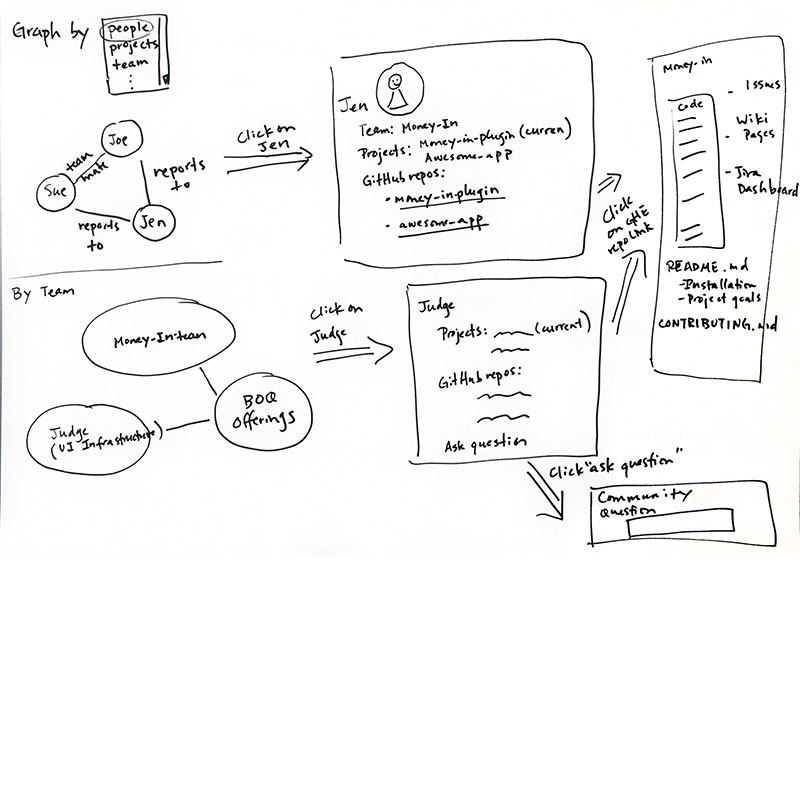 Graph by
people
projects
team
Joe
team
mate
Sue
reports
to
Jen
reports
to
Click on
Jen
Jen
Team: Money-In
Projects: Money-in-plugin (curren)
Awesome-app
GitHub repos:
- money-in-plugin
- awesome-app
Click
on GHE
repo link
Money-in
code
- Issues
Wiki
- Pages
- Jira
Dashboard
README.md
- Installation
- Project goals
CONTRIBUTING.md
By Team
Money-In-team
BOQ
Offerings
Judge
(UI Infrastructure)
Click on
Judge
Judge
Projects: (current)
GitHub repos:
Ask question
Click "ask question"
Community
Question